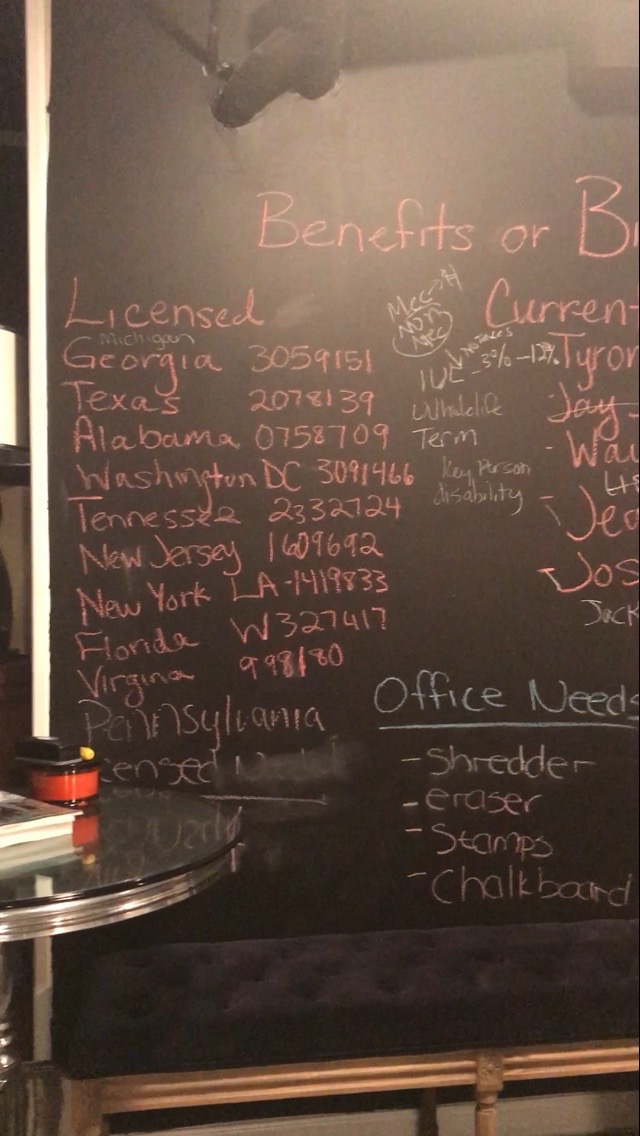 Benefits or
Licensed
Michigan
Georgia 3059151
Texas 2078139
Alabama 0758709
Washington DC 3091466
Tennessee 2332724
New Jersey 1609692
New York LA-1419833
Florida W327417
Virgina 998180
Pennsylvania
ensed
Non
IUL -3%-12%
Wholelife
Term
Key Person
disability
Curren
Tyron
Jay
- Wa
Jos
Jack
Office Needs
- Shredder
- eraser
- Stamps
- Chalkboard